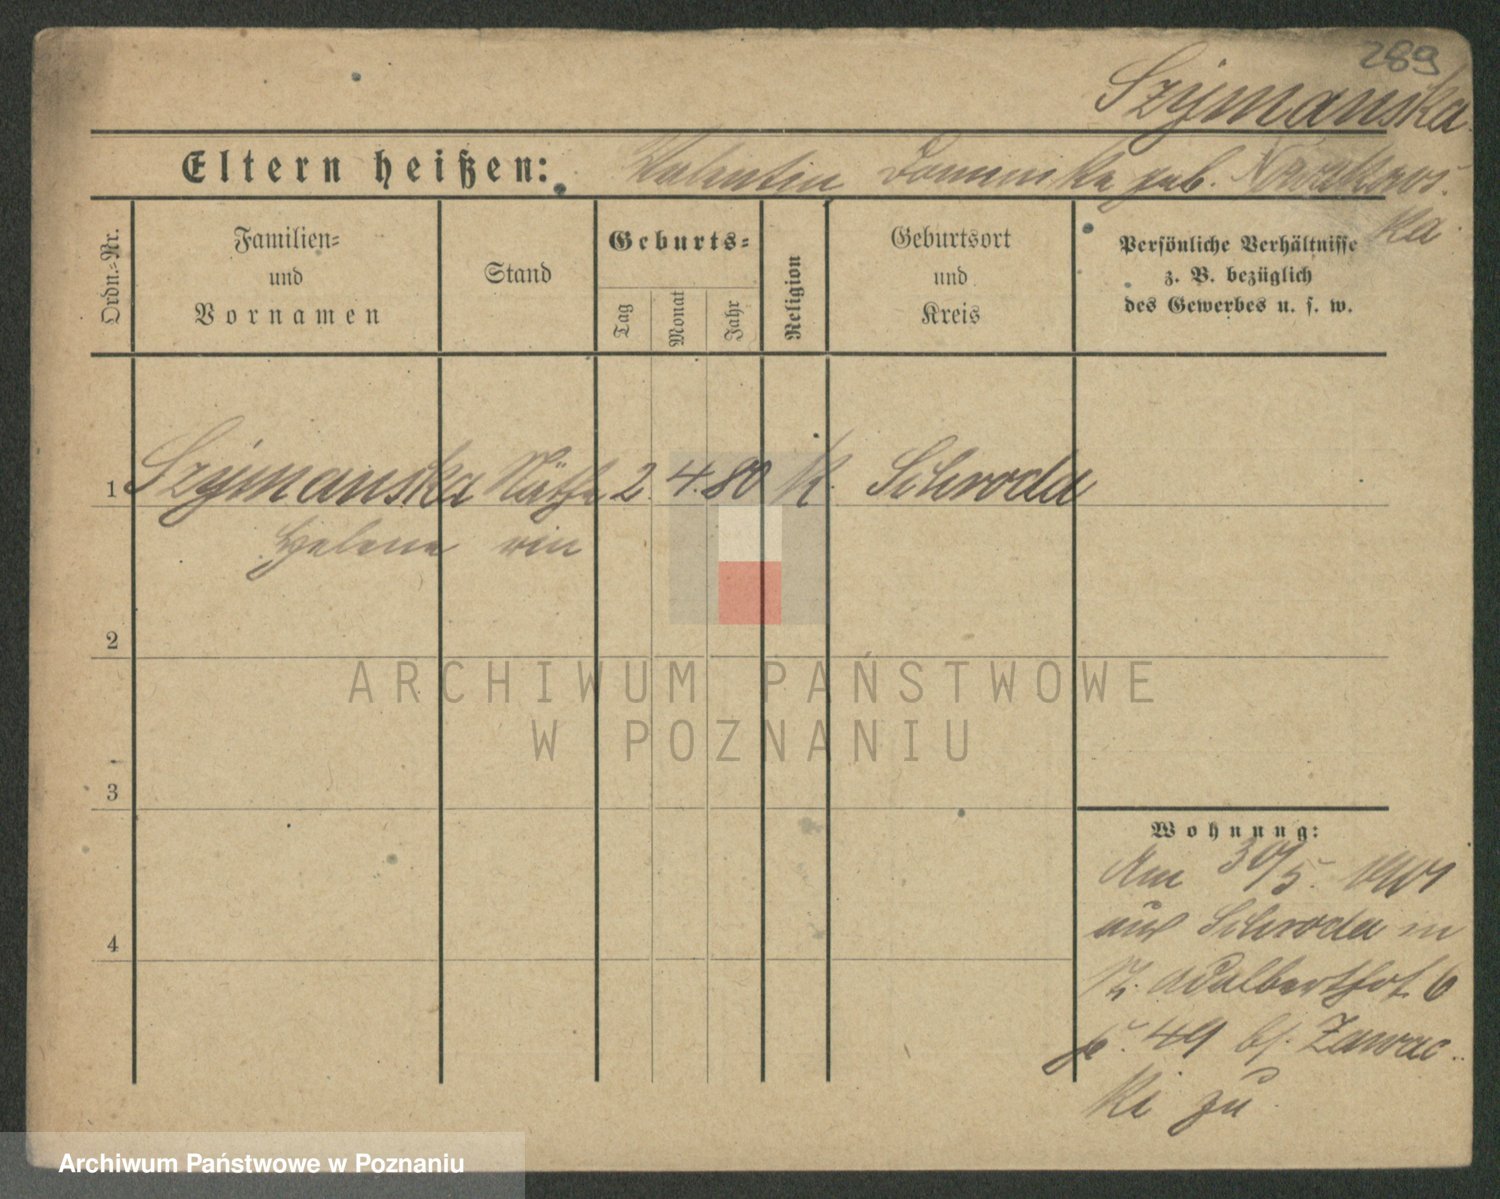 289
Szymanska
Eltern heißen: Valentin Dominika geb. Nowakows-
ka.
Ordn.-Nr.
Familien-
und
Vornamen
Stand
Geburts-
Tag
Monat
Jahr
Religion
Geburtsort
und
Kreis
Persönliche Verhältnisse
z. B. bezüglich
des Gewerbes u. s. w.
1 Szymanska Näthe 2. 4. 80 K. Schroda
Helene rin
2
ARCHIWUM PAŃSTWOWE
W POZNANIU
3
Wohnung:
Am 30/5. 1901
aus Schroda in
St. Adalberthof 6
49 bei Zawac-
ki zu
4
Archiwum Państwowe w Poznaniu